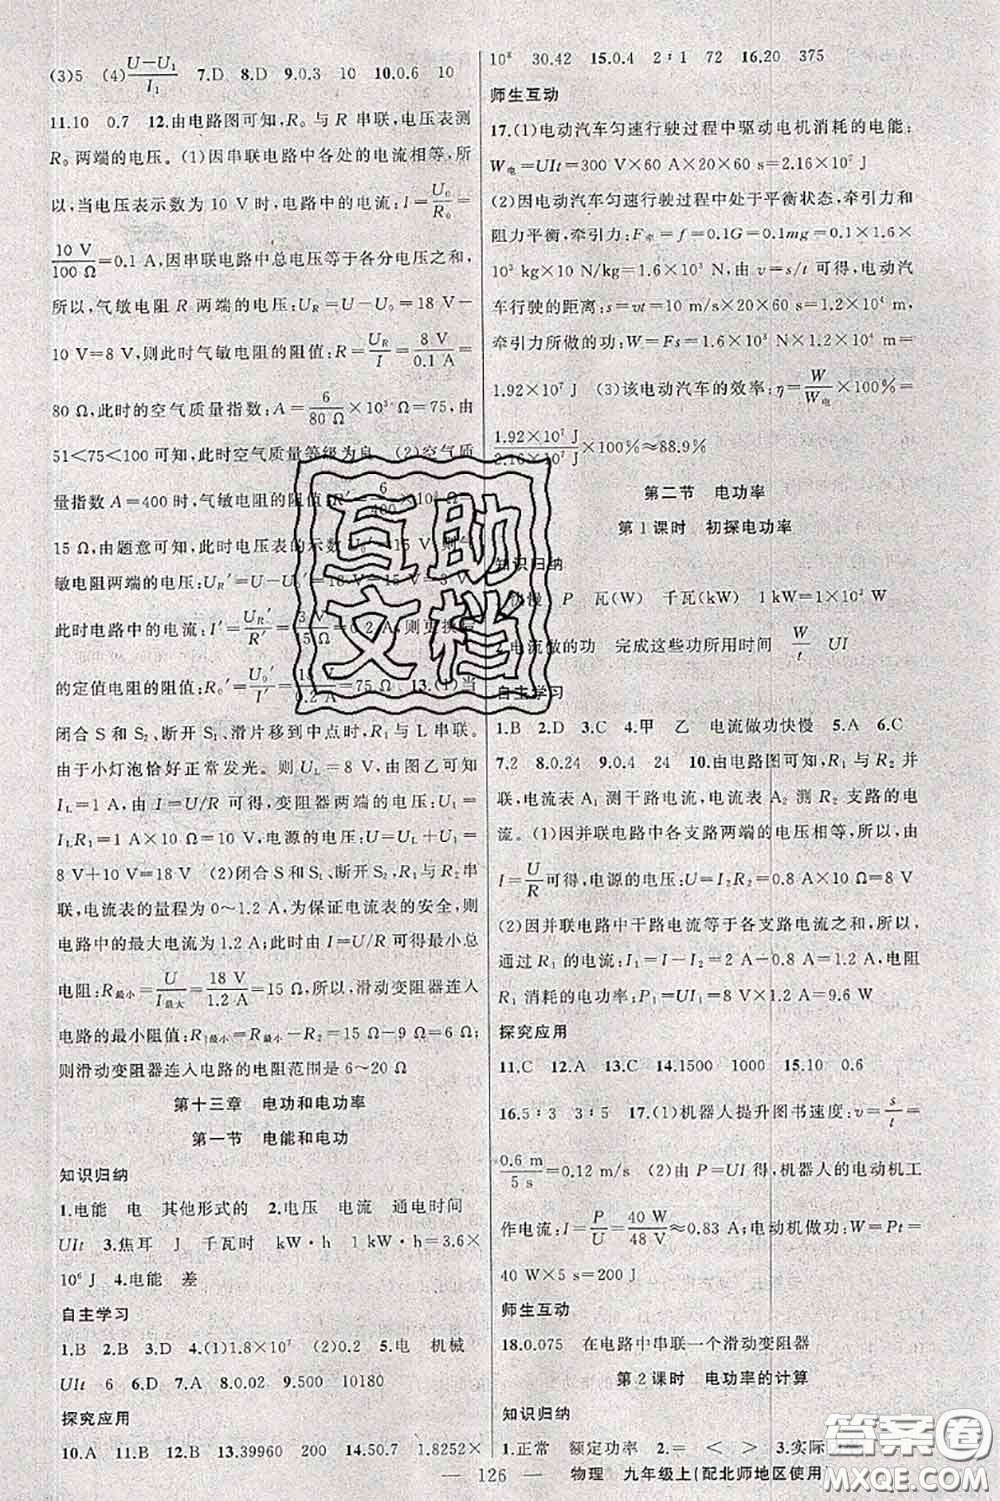 (3)5 (4)(U−U₁)/I₁ 7.D 8.D 9.0.3 10 10.0.6 10
11.10 0.7 12.由电路图可知,R₀ 与 R 串联,电压表测
R₀ 两端的电压。(1)因串联电路中各处的电流相等,所
以,当电压表示数为 10 V 时,电路中的电流:I=U₀/R₀=
10 V/100 Ω=0.1 A,因串联电路中总电压等于各分电压之和,
所以,气敏电阻 R 两端的电压:U_R=U−U₀=18 V−
10 V=8 V,则此时气敏电阻的阻值:R=U_R/I=8 V/0.1 A=
80 Ω,此时的空气质量指数:A=6/80 Ω×10³ Ω=75,由
51<75<100 可知,此时空气质量等级为良 (2)空气质
量指数 A=400 时,气敏电阻的阻值:R′=6/400×10³ Ω=
15 Ω,由题意可知,此时电压表的示数
敏电阻两端的电压:U_R′=U−U₀′=18 V−15 V=3 V
此时电路中的电流:I′=U_R′/R′=3 V/15 Ω=0.2 A,则更换后
的定值电阻的阻值:R₀′=U₀′/I′=15 V/0.2 A=75 Ω 13.(1)当
闭合 S 和 S₂、断开 S₁、滑片移到中点时,R₁ 与 L 串联。
由于小灯泡恰好正常发光。则 U_L=8 V,由图乙可知
I_L=1 A,由 I=U/R 可得,变阻器两端的电压:U₁=
I_LR₁=1 A×10 Ω=10 V,电源的电压:U=U_L+U₁=
8 V+10 V=18 V (2)闭合 S 和 S₁、断开 S₂,R₁ 与 R₂ 串
联,电流表的量程为 0～1.2 A,为保证电流表的安全,则
电路中的最大电流为 1.2 A;此时由 I=U/R 可得最小总
电阻:R最小=U/I最大=18 V/1.2 A=15 Ω,所以,滑动变阻器连入
电路的最小阻值:R₁最小=R最小−R₂=15 Ω−9 Ω=6 Ω;
则滑动变阻器连入电路的电阻范围是 6～20 Ω
第十三章 电功和电功率
第一节 电能和电功
知识归纳
1.电能 电 其他形式的 2.电压 电流 通电时间
UIt 3.焦耳 J 千瓦时 kW·h 1 kW·h=3.6×
10⁶ J 4.电能 差
自主学习
1.B 2.B 3.D 4.(1)1.8×10⁷ (2)0.2 5.电 机械
UIt 6 6.D 7.A 8.0.02 9.500 10180
探究应用
10.A 11.B 12.B 13.39960 200 14.50.7 1.8252×
10⁸ 30.42 15.0.4 2∶1 72 16.20 375
师生互动
17.(1)电动汽车匀速行驶过程中驱动电机消耗的电能:
W电=UIt=300 V×60 A×20×60 s=2.16×10⁷ J
(2)因电动汽车匀速行驶过程中处于平衡状态,牵引力和
阻力平衡,牵引力:F牵=f=0.1G=0.1mg=0.1×1.6×
10³ kg×10 N/kg=1.6×10³ N,由 v=s/t 可得,电动汽
车行驶的距离:s=vt=10 m/s×20×60 s=1.2×10⁴ m,
牵引力所做的功:W=Fs=1.6×10³ N×1.2×10⁴ m=
1.92×10⁷ J (3)该电动汽车的效率:η=W/W电×100%=
1.92×10⁷ J/2.16×10⁷ J×100%≈88.9%
第二节 电功率
第1课时 初探电功率
知识归纳
快慢 P 瓦(W) 千瓦(kW) 1 kW=1×10³ W
2.电流做的功 完成这些功所用时间 W/t UI
自主学习
1.B 2.D 3.C 4.甲 乙 电流做功快慢 5.A 6.C
7.2 8.0.24 9.0.4 24 10.由电路图可知,R₁ 与 R₂ 并
联,电流表 A₁ 测干路电流,电流表 A₂ 测 R₂ 支路的电
流。(1)因并联电路中各支路两端的电压相等,所以,由
I=U/R可得,电源的电压:U=I₂R₂=0.8 A×10 Ω=8 V
(2)因并联电路中干路电流等于各支路电流之和,所以,
通过 R₁ 的电流:I₁=I−I₂=2 A−0.8 A=1.2 A,电阻
R₁ 消耗的电功率:P₁=UI₁=8 V×1.2 A=9.6 W
探究应用
11.C 12.A 13.C 14.1500 1000 15.10 0.6
16.5∶3 3∶5 17.(1)机器人提升图书速度:v=s/t=
0.6 m/5 s=0.12 m/s (2)由 P=UI 得,机器人的电动机工
作电流:I=P/U=40 W/48 V≈0.83 A;电动机做功:W=Pt=
40 W×5 s=200 J
师生互动
18.0.075 在电路中串联一个滑动变阻器
第2课时 电功率的计算
知识归纳
1.正常 额定功率 2.= < > 3.实际
— 126 — 物理 九年级上(配北师地区使用)
互助
文档
答案圈
MXQE.COM